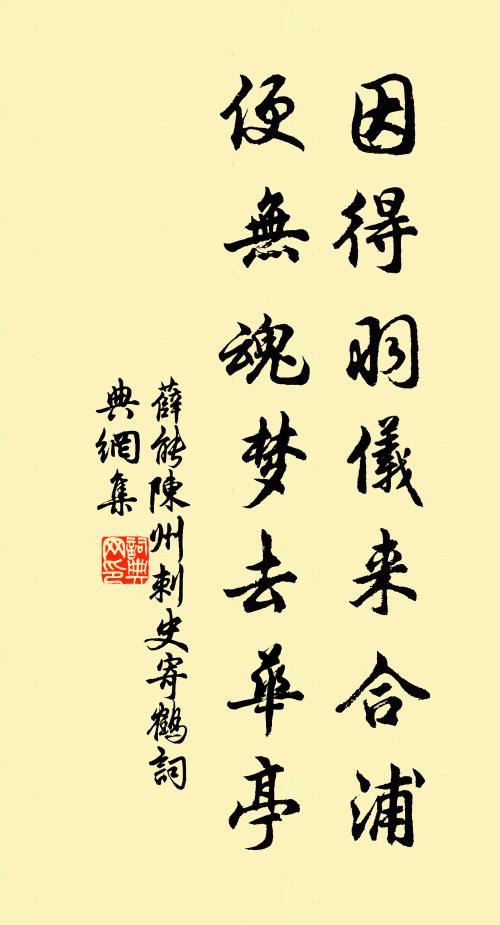 因得羽儀来合浦
便無魂梦去華亭
薛能陳州刺史寄鶴詞
典網集
詞典
网印